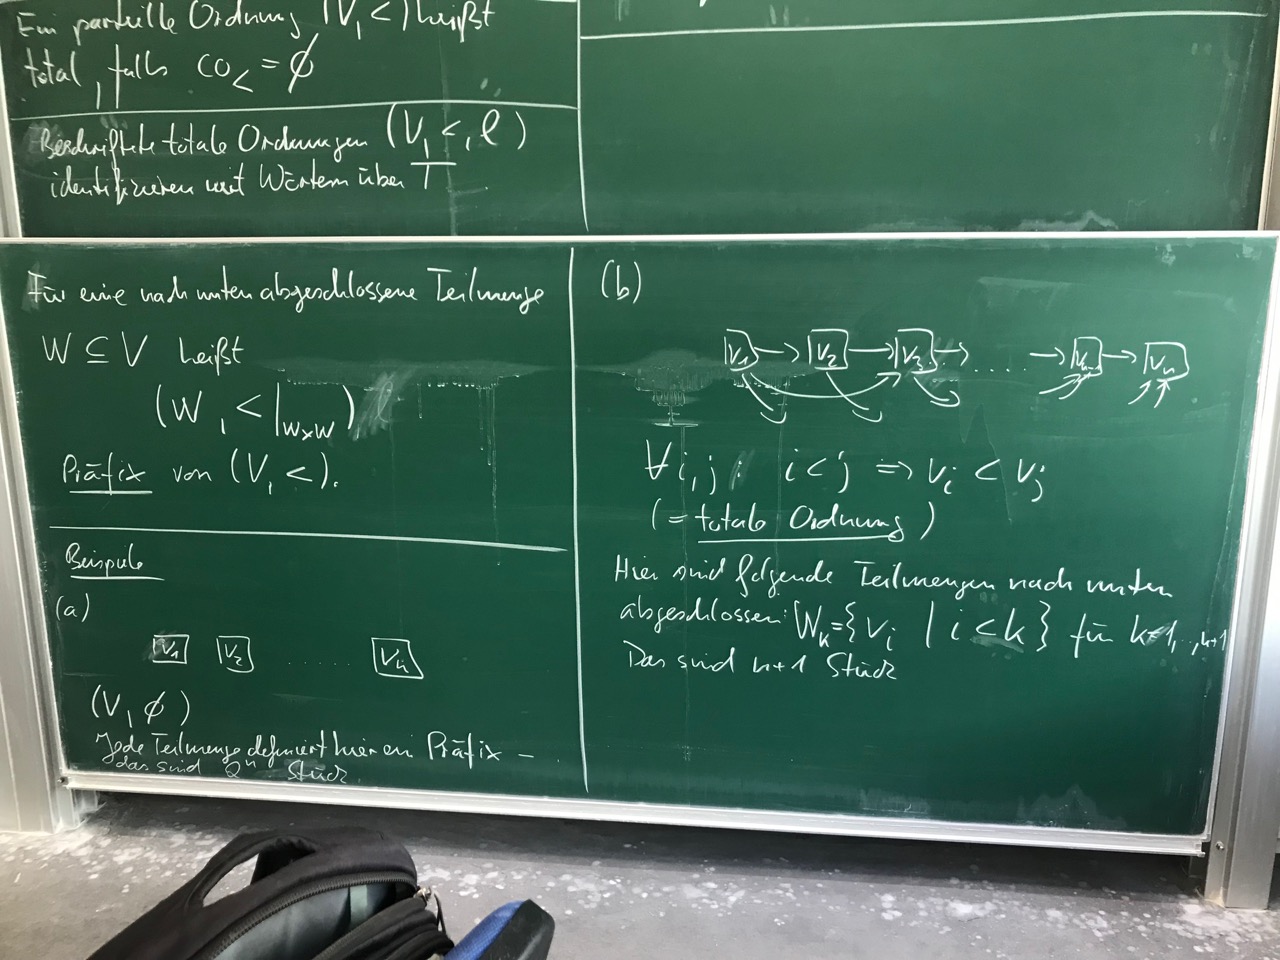 Eine partielle Ordnung (V, <) heißt
total, falls co< = ∅
Beschriftete totale Ordnungen (V, <, l)
identifizieren mit Wörtern über T
Für eine nach unten abgeschlossene Teilmenge
W ⊆ V heißt
(W, <|W×W)
Präfix von (V, <).
Beispiele
(a)
v1 v2 ...... vn
(V, ∅)
Jede Teilmenge definiert hier ein Präfix –
das sind 2^n Stück
(b)
v1 → v2 → v3 → ..... → → vn
∀ i, j : i < j ⇒ vi < vj
(= totale Ordnung)
Hier sind folgende Teilmengen nach unten
abgeschlossen: Wk = {vi | i < k} für k=1,..,n+1
Das sind n+1 Stück